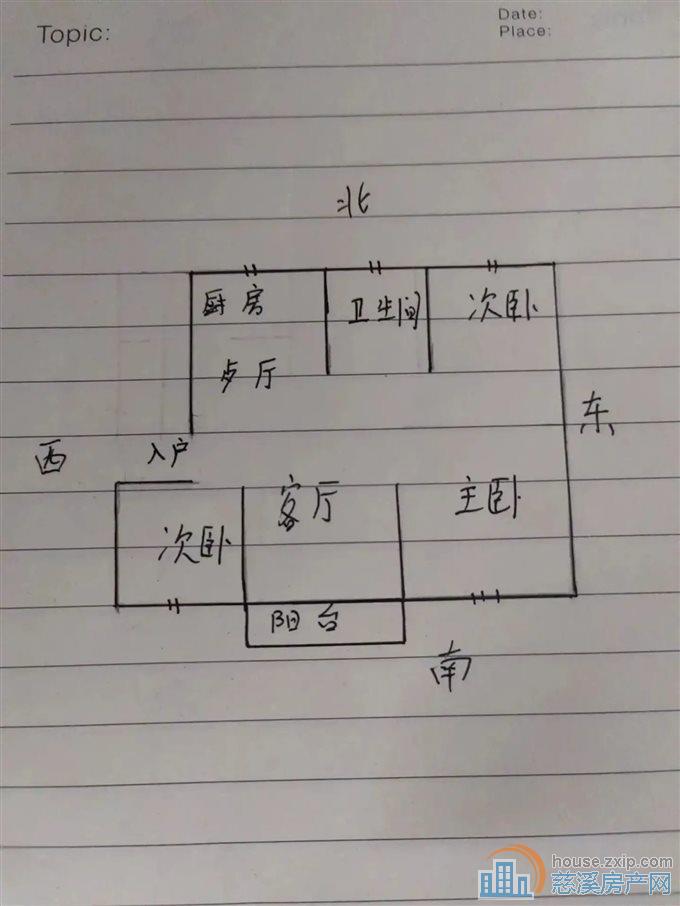 Topic:
Date:
Place:
北
厨房
卫生间
次卧
歺厅
东
西
入户
客厅
主卧
次卧
阳台
南
house.zxip.com
慈溪房产网